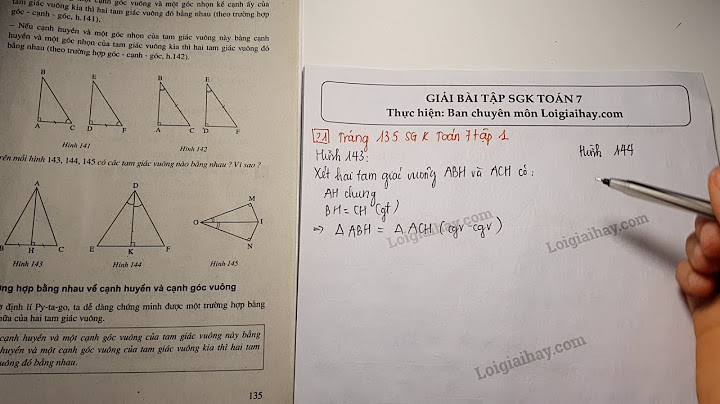 tam giác vuông kia thì hai tam giác vuông đó bằng nhau (theo trường hợp
góc - cạnh - góc, h.141).
– Nếu cạnh huyền và một góc nhọn của tam giác vuông này bằng cạnh
huyền và một góc nhọn của tam giác vuông kia thì hai tam giác vuông đó
bằng nhau (theo trường hợp góc - cạnh - góc, h.142).
B E B E
A C D F A C D F
Hình 141 Hình 142
trên mỗi hình 143, 144, 145 có các tam giác vuông nào bằng nhau ? Vì sao ?
A D M
O I
B H C E K F N
Hình 143 Hình 144 Hình 145
hợp bằng nhau về cạnh huyền và cạnh góc vuông
định lí Py-ta-go, ta dễ dàng chứng minh được một trường hợp bằng
nữa của hai tam giác vuông.
cạnh huyền và một cạnh góc vuông của tam giác vuông này bằng
huyền và một cạnh góc vuông của tam giác vuông kia thì hai tam
vuông đó bằng nhau.
135
GIẢI BÀI TẬP SGK TOÁN 7
Thực hiện: Ban chuyên môn Loigiaihay.com
?1 Trang 135 SGK Toán 7 tập 1
Hình 143:
Xét hai tam giác vuông ABH và ACH có:
AH chung
BH = CH (gt)
⇒ Δ ABH = Δ ACH (cgv - cgv)
Hình 144
Loigiaihay.com
Loigiaihay.com
Loigiaihay.com